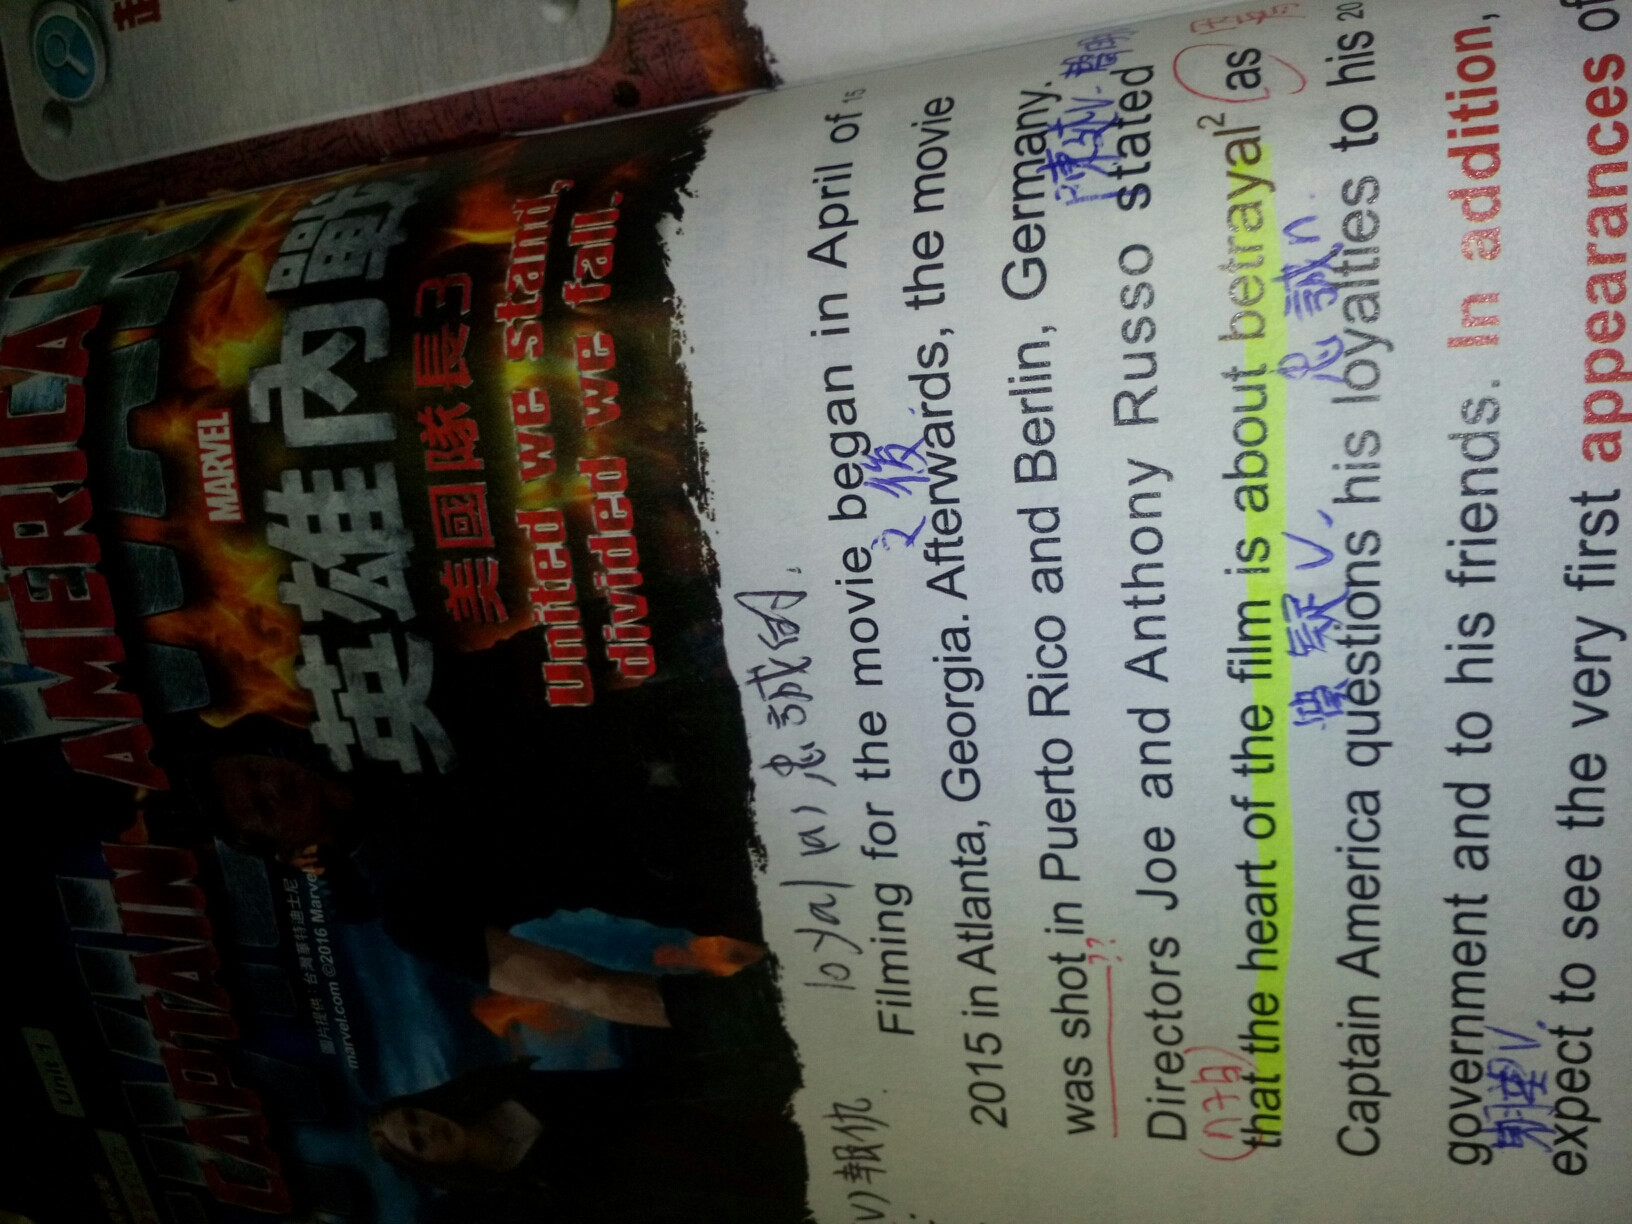 Unit 1
CAPTAIN AMERICA
MARVEL
英雄內戰
美國隊長3
United we stand,
divided we fall.
圖片提供：台灣華特迪士尼
marvel.com ©2016 Marvel
v) 報仇
loyal (a) 忠誠的
Filming for the movie began in April of 15
之後
2015 in Atlanta, Georgia. Afterwards, the movie
was shot in Puerto Rico and Berlin, Germany.
??
陳述 v. 聲明
Directors Joe and Anthony Russo stated
(that the heart of the film is about betrayal² (as
質疑 v. 忠誠 n.
Captain America questions his loyalties to his 20
government and to his friends. In addition,
期望 v.
expect to see the very first appearances of